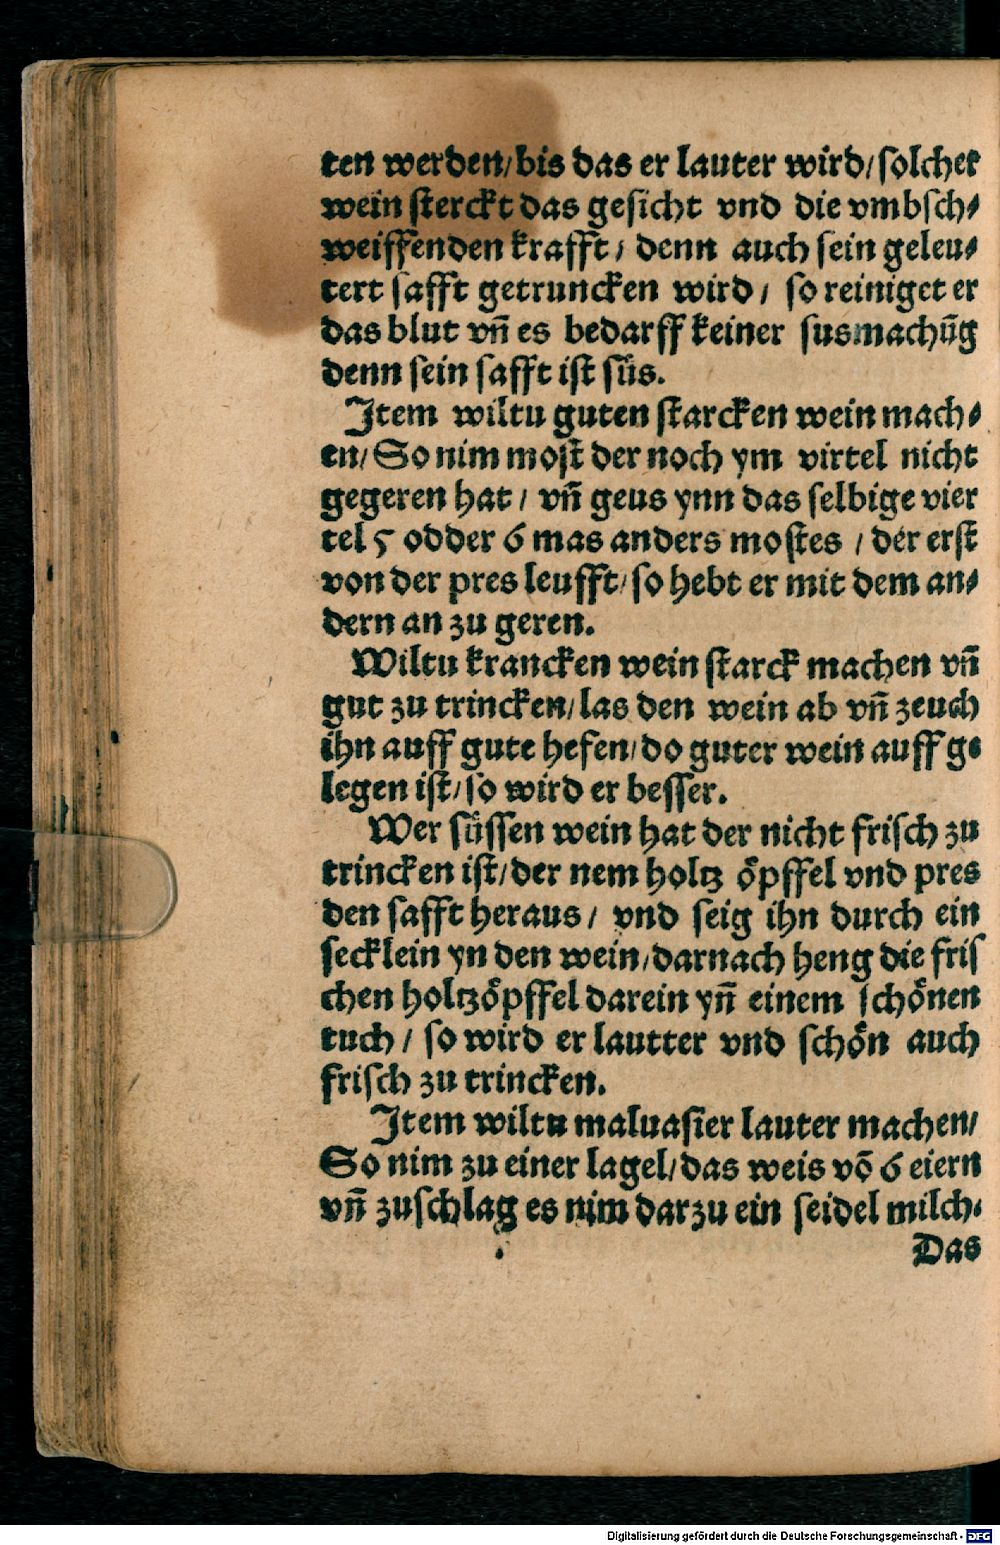 ten werden/bis das er lauter wird/solcher
wein sterckt das gesicht vnd die vmbsch⸗
weiffenden krafft/ denn auch sein geleu⸗
tert safft getruncken wird/ so reiniget er
das blut vñ es bedarff keiner susmachūg
denn sein safft ist süs.
Item wiltu guten starcken wein mach⸗
en/So nim most der noch ym virtel nicht
gegeren hat/ vñ geus ynn das selbige vier
tel 5 odder 6 mas anders mostes/ der erst
von der pres leufft/so hebt er mit dem an⸗
dern an zu geren.
Wiltu krancken wein starck machen vñ
gut zu trincken/las den wein ab vñ zeuch
ihn auff gute hefen/do guter wein auff ge
legen ist/so wird er besser.
Wer süssen wein hat der nicht frisch zu
trincken ist/der nem holtz öpffel vnd pres
den safft heraus/ vnd seig ihn durch ein
secklein yn den wein/darnach heng die fris
chen holtzöpffel darein yñ einem schönen
tuch/ so wird er lautter vnd schön auch
frisch zu trincken.
Item wiltu maluasier lauter machen/
So nim zu einer lagel/das weis vō 6 eiern
vñ zuschlag es nim darzu ein seidel milch.
Das
Digitalisierung gefördert durch die Deutsche Forschungsgemeinschaft - DFG